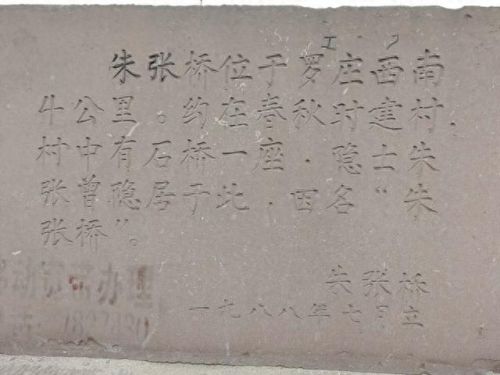 朱张桥位于罗庄西南
半公里。约在春秋时建村.
村中有石桥一座.隐士朱
张曾隐居于此.因名“朱
张桥”。
朱张桥
一九八八年七月立
办理